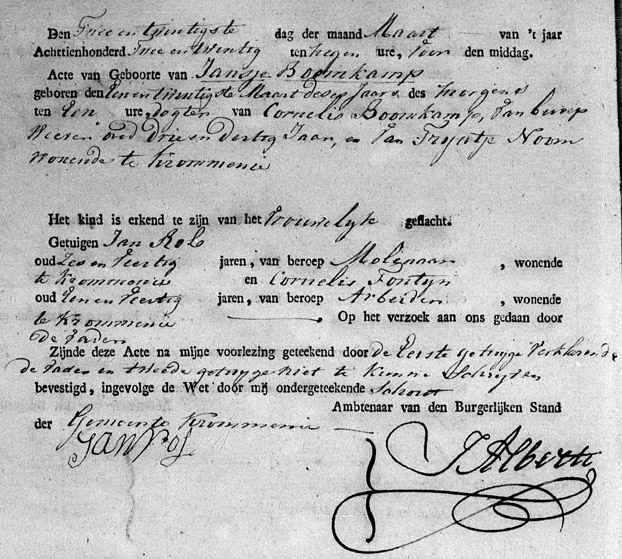 Den Twee en twintigste dag der maand Maart van 't jaar
Achttienhonderd Twee en twentig ten negen ure, voor den middag.
Acte van Geboorte van Jansje Boomkamp
geboren den Een en twentigste Maart deses Jaars des morgens
ten Een ure, dogter van Cornelis Boomkamp, van beroep
Weever oud Drie en dertig Jaar, en van Tryntje Noom
wonende te Krommenie
Het kind is erkend te zijn van het Vrouwelyk geslacht.
Getuigen Jan Rol
oud Zes en Veertig jaren, van beroep Molenaar, wonende
te Krommenie en Cornelis Fontyn
oud Een en Veertig jaren, van beroep Arbeider, wonende
te Krommenie Op het verzoek aan ons gedaan door
de Vader
Zijnde deze Acte na mijne voorlezing geteekend door de Eerste getuige Verklarende
de Vader en tweede getuyge niet te kunne Schryven
bevestigd, ingevolge de Wet door mij ondergeteekende Schout
Ambtenaar van den Burgerlijken Stand
der Gemeente Krommenie
JAN Rol
J Alberti